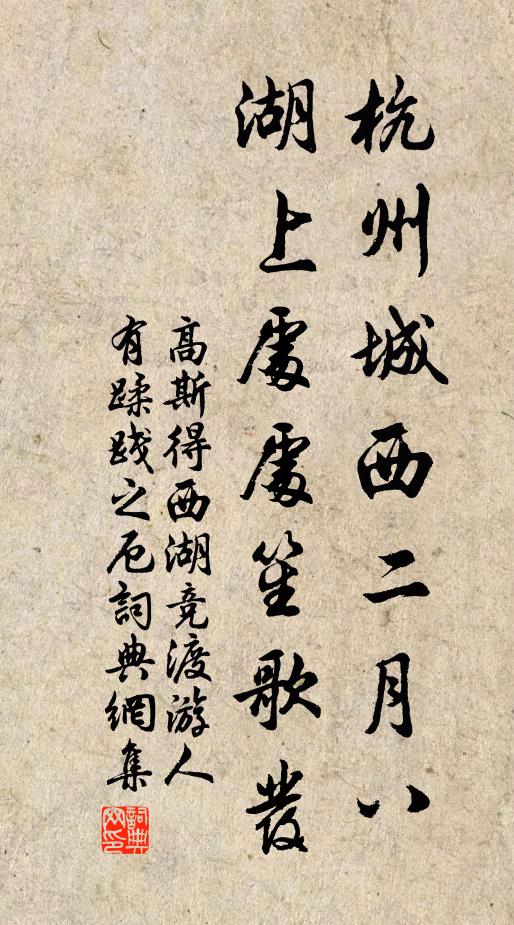 杭州城西二月八
湖上處處笙歌發
高斯得西湖竞渡游人
有蹂踐之厄詞典網集
詞典
网印